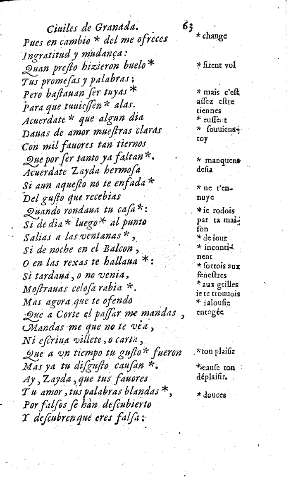 Ciuiles de Granada. 63
Pues en cambio * del me ofreces * change
Ingratitud y mudança:
Quan presto hizieron buelo * * firent vol
Tus promesas y palabras;
Pero bastauan ser tuyas * * mais c'est
assez estre
tiennes
Para que tuuiessen * alas. * eussent
Acuerdate * que algun dia * souuiens-
toy
Dauas de amor muestras claras
Con mil fauores tan tiernos
Que por ser tanto ya faltan *. * manquent
desia
Acuerdate Zayda hermosa
Si aun aquesto no te enfada * * ne t'en-
nuye
Del gusto que recebias
Quando rondaua tu casa *: * ie rodois
par ta mai-
son
Si de dia * luego * al punto * de iour
* incontinent
Salias a las ventanas *,
Si de noche en el Balcon,
O en las rexas te hallaua *: * sortois aux
fenestres
* aux grilles
ie te trouuois
Si tardaua, o no venia,
Mostrauas celosa rabia *. * ialousie
enragée
Mas agora que te ofendo
Que a Corte el passar me mandas,
Mandas me que no te vea,
Ni escriua villete, o carta,
Que a vn tiempo tu gusto * fueron * ton plaisir
Mas ya tu disgusto causan *. * cause ton
déplaisir.
Ay, Zayda, que tus fauores
Tu amor, tus palabras blandas *, * douces
Por falsos se han descubierto
Y descubren que eres falsa: